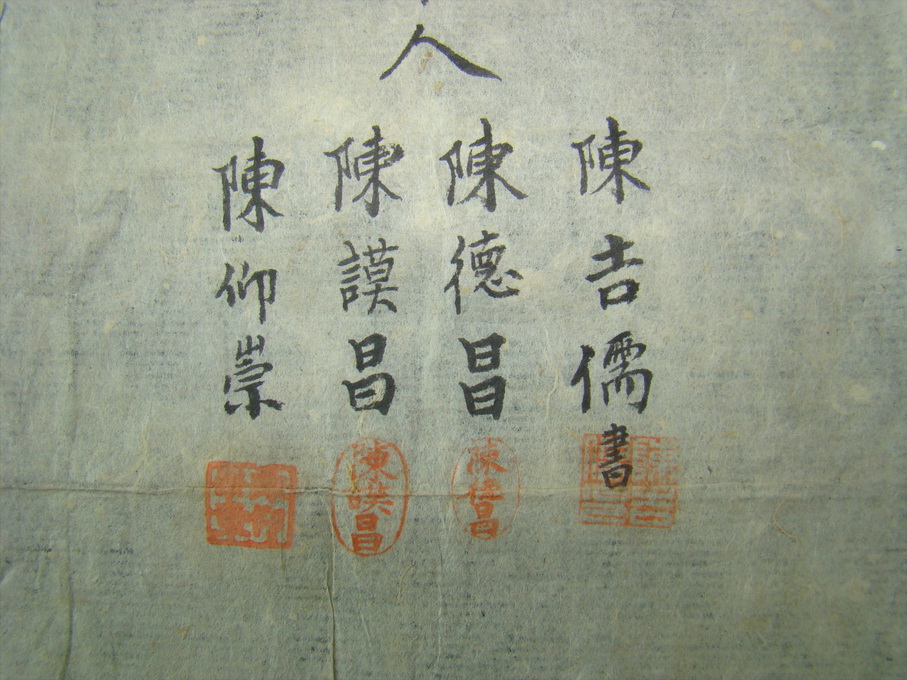 人
陳吉儒書
陳德昌
陳謨昌
陳仰崇
陳德昌
陳謨昌